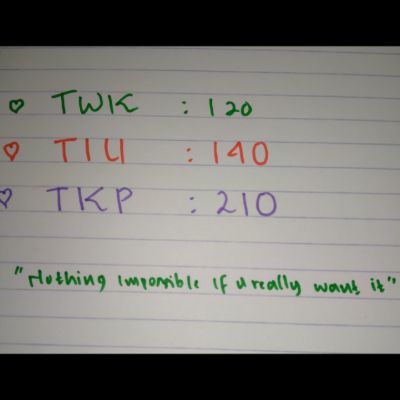 ♡ TWK : 120
♡ TIU : 140
♡ TKP : 210
"Nothing Impossible If u really want it"